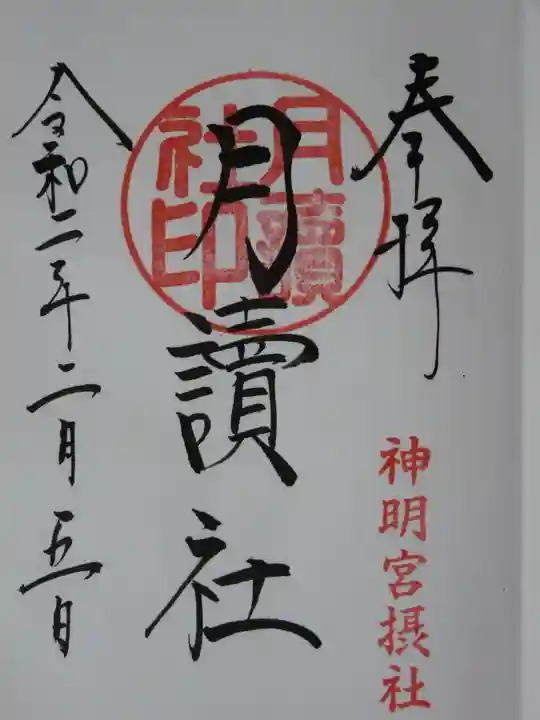 奉拝
神明宮摂社
月讀社
月讀社印
令和二年二月五日